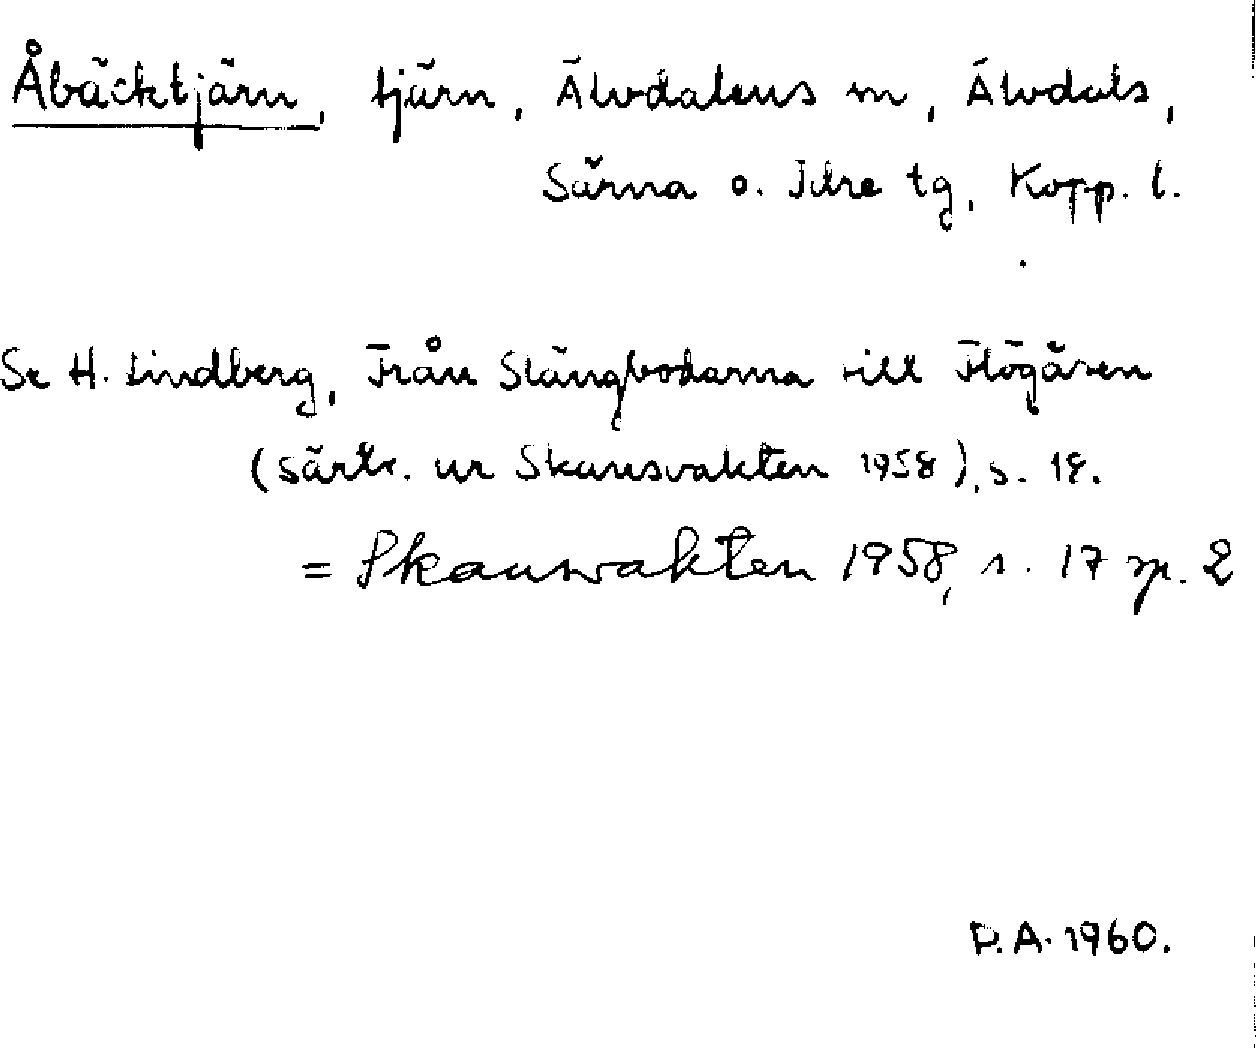 Åbäcktjärn, tjärn, Älvdalens sn, Älvdals,
Särna o. Idre tg, Kopp. l.
Se H. Lindberg, Från Slängbodarna till Flögåsen
(särtr. ur Skansvakten 1958), s. 18.
= Skansvakten 1958, s. 17 sp. 2
D.A. 1960.